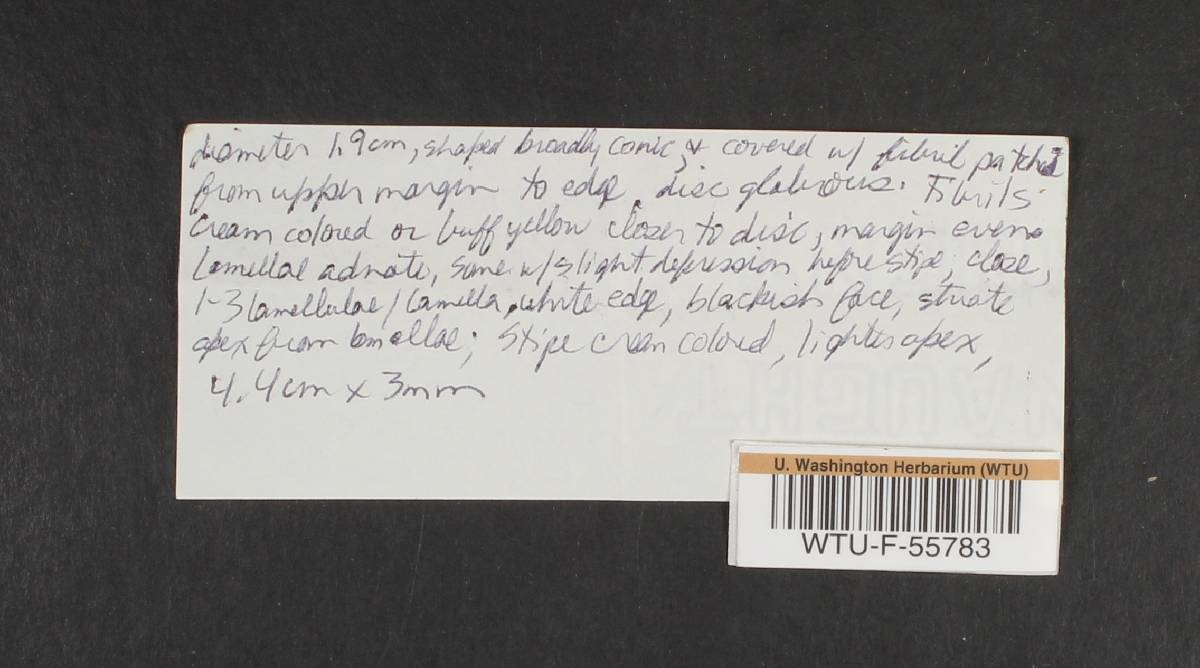 diameter 1.9cm, shaped broadly conic, & covered w/ fibril patches
from upper margin to edge, disc glabrous. Fibrils
cream colored or buff yellow closer to disc, margin even.
Lamellae adnate, some w/ slight depression before stipe, close,
1-3 lamellulae/lamella, white edge, blackish face, striate
apex from lamellae; stipe cream colored, lighter apex,
4.4cm x 3mm
U. Washington Herbarium (WTU)
WTU-F-55783